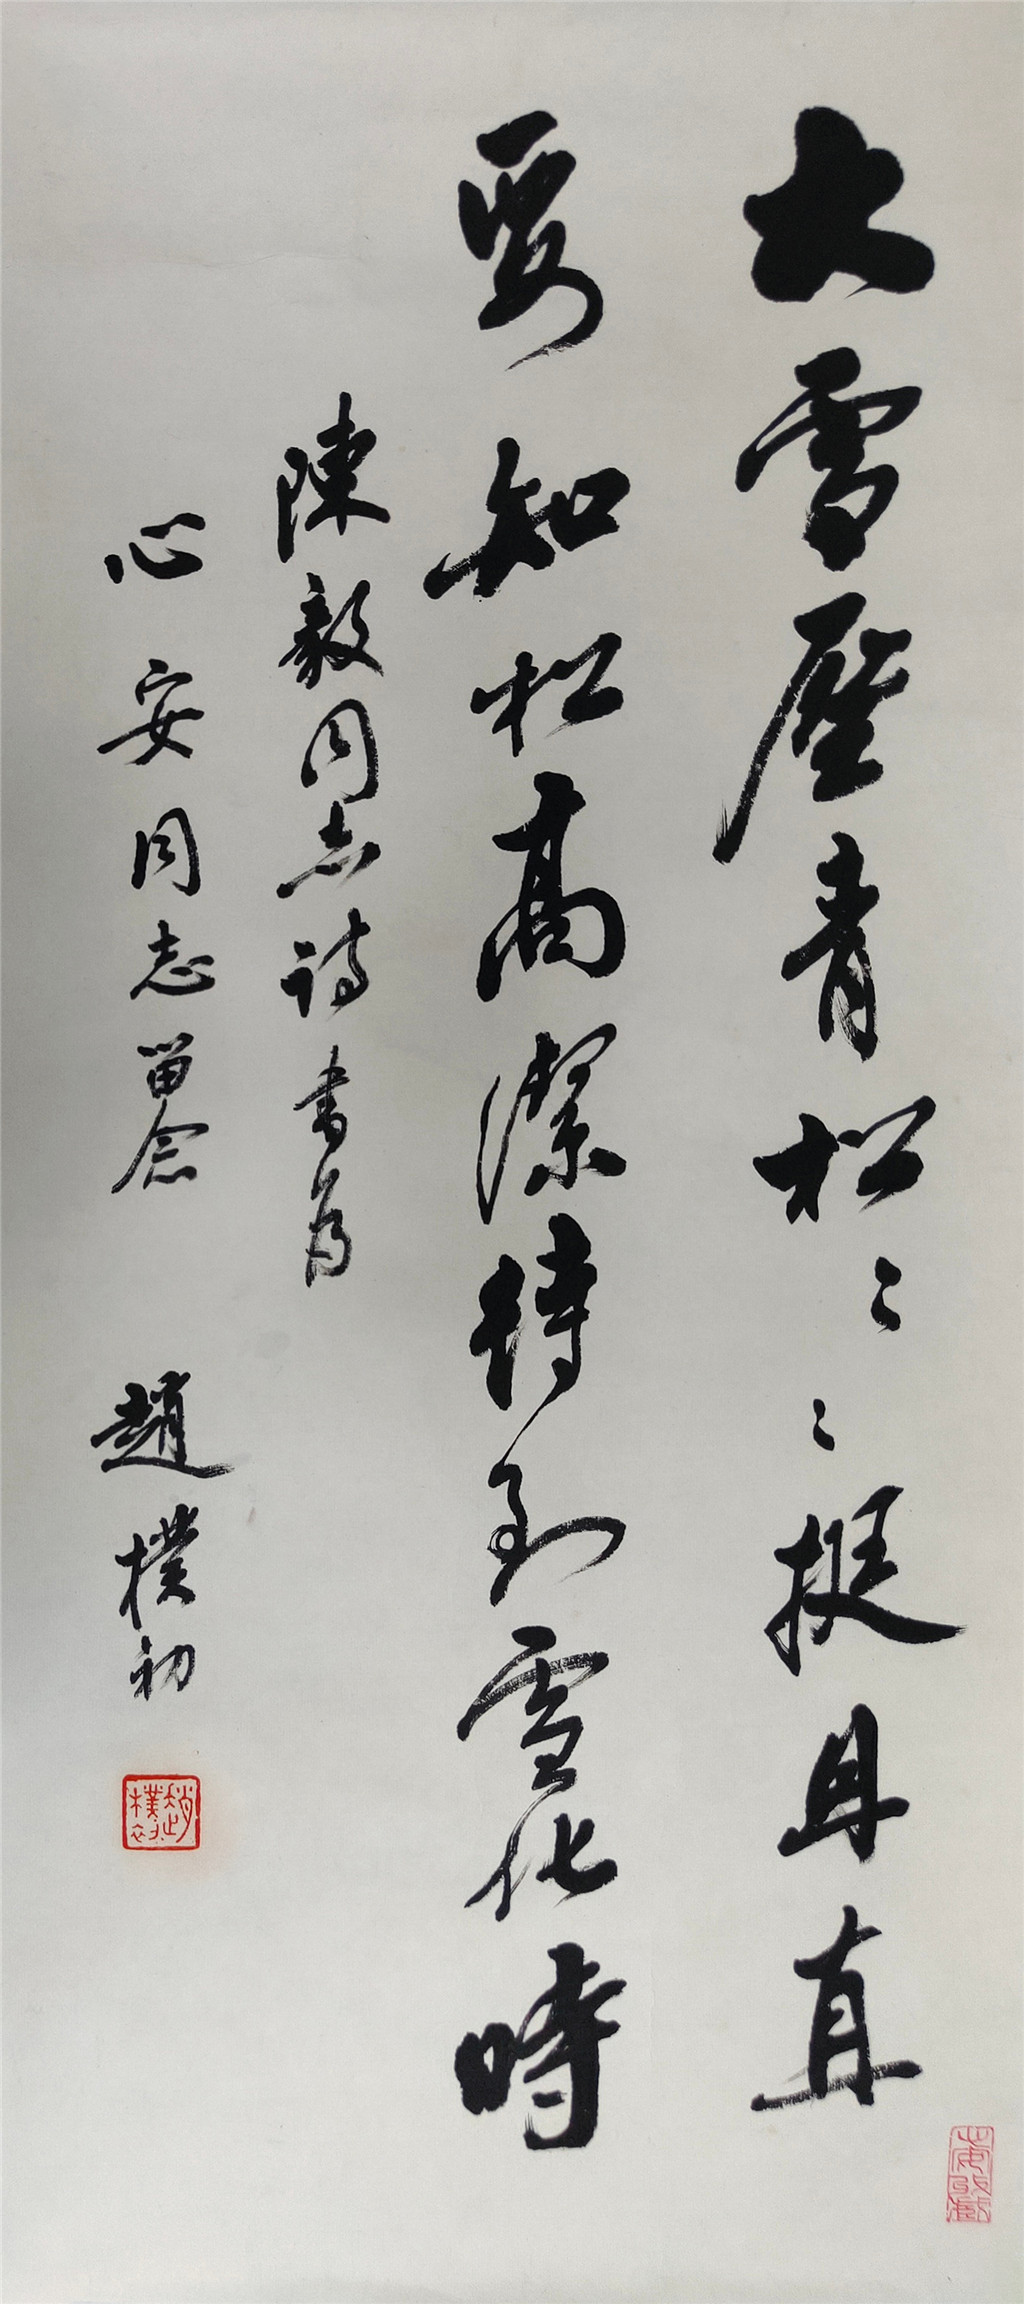 大雪壓青松㆓㆓挺且直
要知松高潔待到雪化時
陳毅同志詩書為
心安同志留念 趙樸初
趙樸初